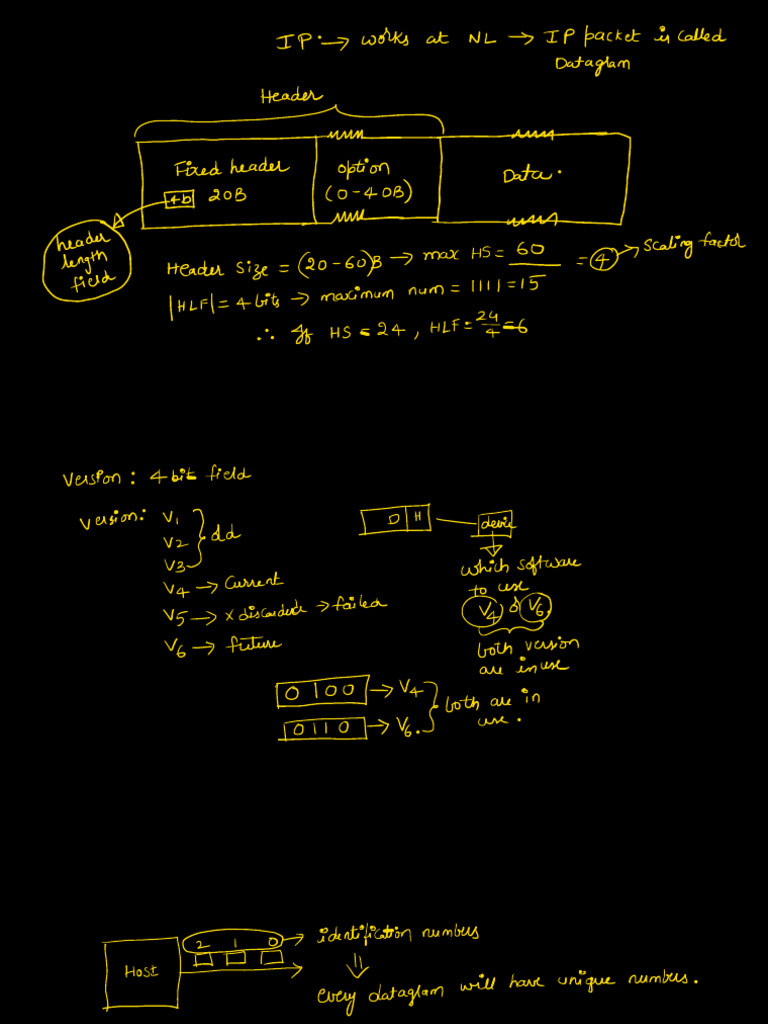 IP → works at NL → IP packet is called
Datagram
Header
Fixed header
4b 20B
option
(0-40B)
Data.
header
length
field
Header size = (20-60)B → max HS = 60
= 4 → scaling factor
|HLF| = 4 bits → maximum num = 1111 = 15
∴ If HS = 24, HLF = 24/4 = 6
Version: 4 bit field
Version: V1
V2
V3
old
V4 → Current
V5 → x discarded → failed
V6 → future
D H
device
which software
to use
V4 or V6.
both version
are in use
0100 → V4
0110 → V6.
both are in
use.
Host
2 1 0 → identification numbers
⇓
every datagram will have unique numbers.